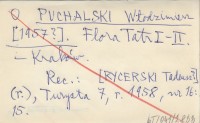 PUCHALSKI Włodzimierz
[1957?]. Flora Tatr I-II.
- Kraków.
Rec.: [RYCERSKI Tadeusz]
(r.), Turysta 7, r. 1958, nr 16:
15.